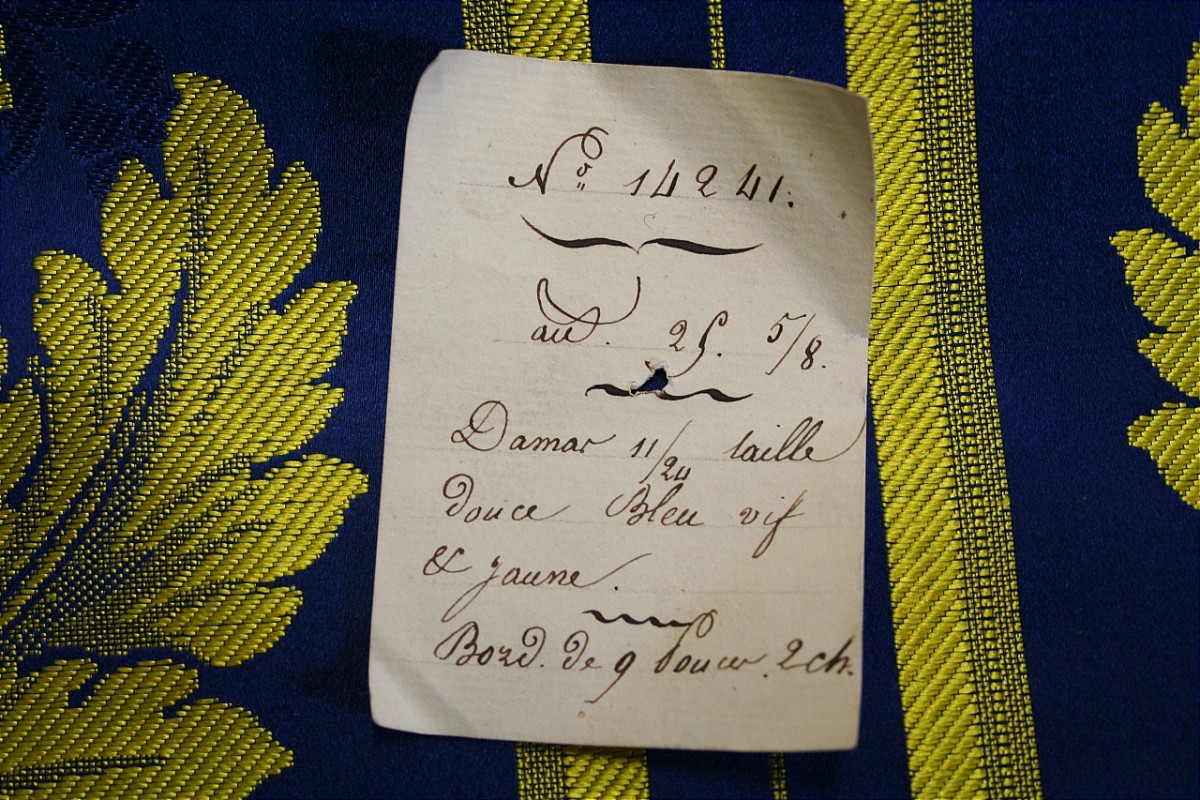 No 14241.
au. 25. 5/8.
Damas 11/24 taille
douce Bleu vif
& jaune.
Bord. de 9 pouces 2 ch.